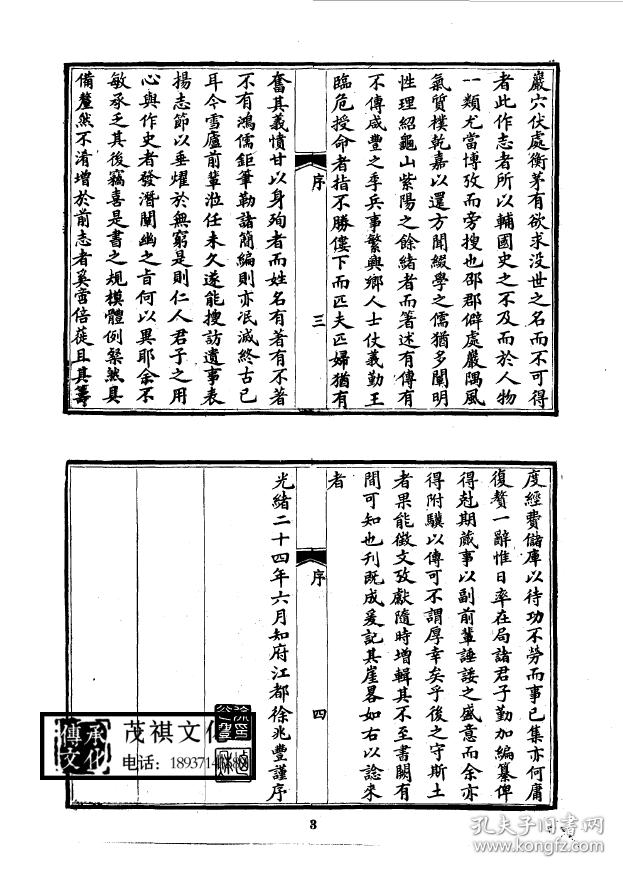 巖穴伏處衡茅有欲求没世之名而不可得
者此作志者所以輔國史之不及而於人物
一類尤當博攷而旁搜也邵郡僻處嚴隅風
氣質樸乾嘉以還方聞綴學之儒猶多闡明
性理紹龜山紫陽之餘緒者而著述有傳有
不傳咸豐之季兵事繁興鄉人士仗義勤王
臨危授命者指不勝僂下而匹夫匹婦猶有
序
三
奮其義憤甘以身殉者而姓名有著有不著
不有鴻儒鉅筆勒諸簡編則亦泯滅終古已
耳今雪廬前輩涖任未久遂能搜訪遺事表
揚志節以垂燿於無窮是則仁人君子之用
心與作史者發潛闡幽之旨何以異耶余不
敏承乏其後竊喜是書之規模體例粲然具
備釐然不淆增於前志者奚啻倍蓰且其籌
度經費儲庫以待功不勞而事已集亦何庸
復贅一辭惟日率在局諸君子勤加編纂俾
得尅期蕆事以副前輩諈諉之盛意而余亦
得附驥以傳可不謂厚幸矣乎後之守斯土
者果能徵文攷獻隨時增輯其不至書闕有
間可知也刊既成爰記其崖畧如右以諗來
者
序
四
光緒二十四年六月知府江都徐兆豐謹序
傳承文化
茂祺文化
电话：18937141
3
孔夫子旧书网
www.kongfz.com